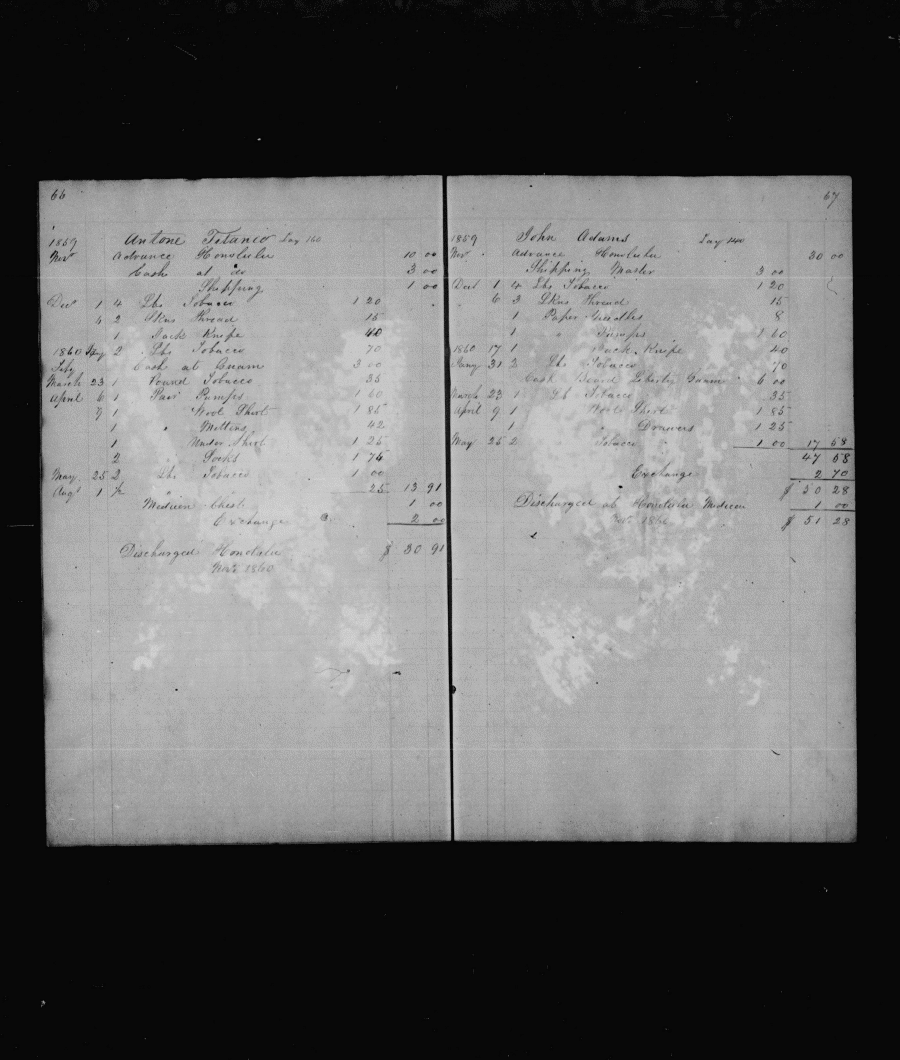 66
1859 Antone Titaneo Lay 160
Nov Advance Honolulu 10 00
Cash at do 3 00
Shipping 1 00
Dec 1 4 Lbs Tobacco 1 20
6 2 Skns Thread 15
1 Jack Knife 40
1860 Jany 2 Lbs Tobacco 70
Feby Cash at Guam 3 00
March 23 1 Pound Tobacco 35
April 6 1 Pair Pumps 1 60
9 1 " Wool Shirt 1 85
1 " Mittens 42
1 Under Shirt 1 25
2 " Socks 1 74
May 25 2 Lbs Tobacco 1 00
Augt 1 ½ " 25 13 91
Medicin Chest 1 00
Exchange 2 00
Discharged Honolulu $ 30 91
Nov 1860
67
1859 John Adams Lay 140
Nov Advance Honolulu 30 00
Shipping Master 3 00
Dec 1 4 Lbs Tobacco 1 20
" 6 3 Skns Thread 15
1 Paper Needles 8
1 " Pumps 1 60
1860 17 1 Jack Knife 40
Jany 31 2 Lbs Tobacco 70
Cash Board Liberty Guam 6 00
March 23 1 Lb Tobacco 35
April 9 1 Wool Shirt 1 85
1 " Drawers 1 25
May 25 2 " Tobacco " 1 00 17 58
47 58
Exchange 2 70
$ 50 28
Discharged at Honolulu Medicin 1 00
Nov 1860 $ 51 28